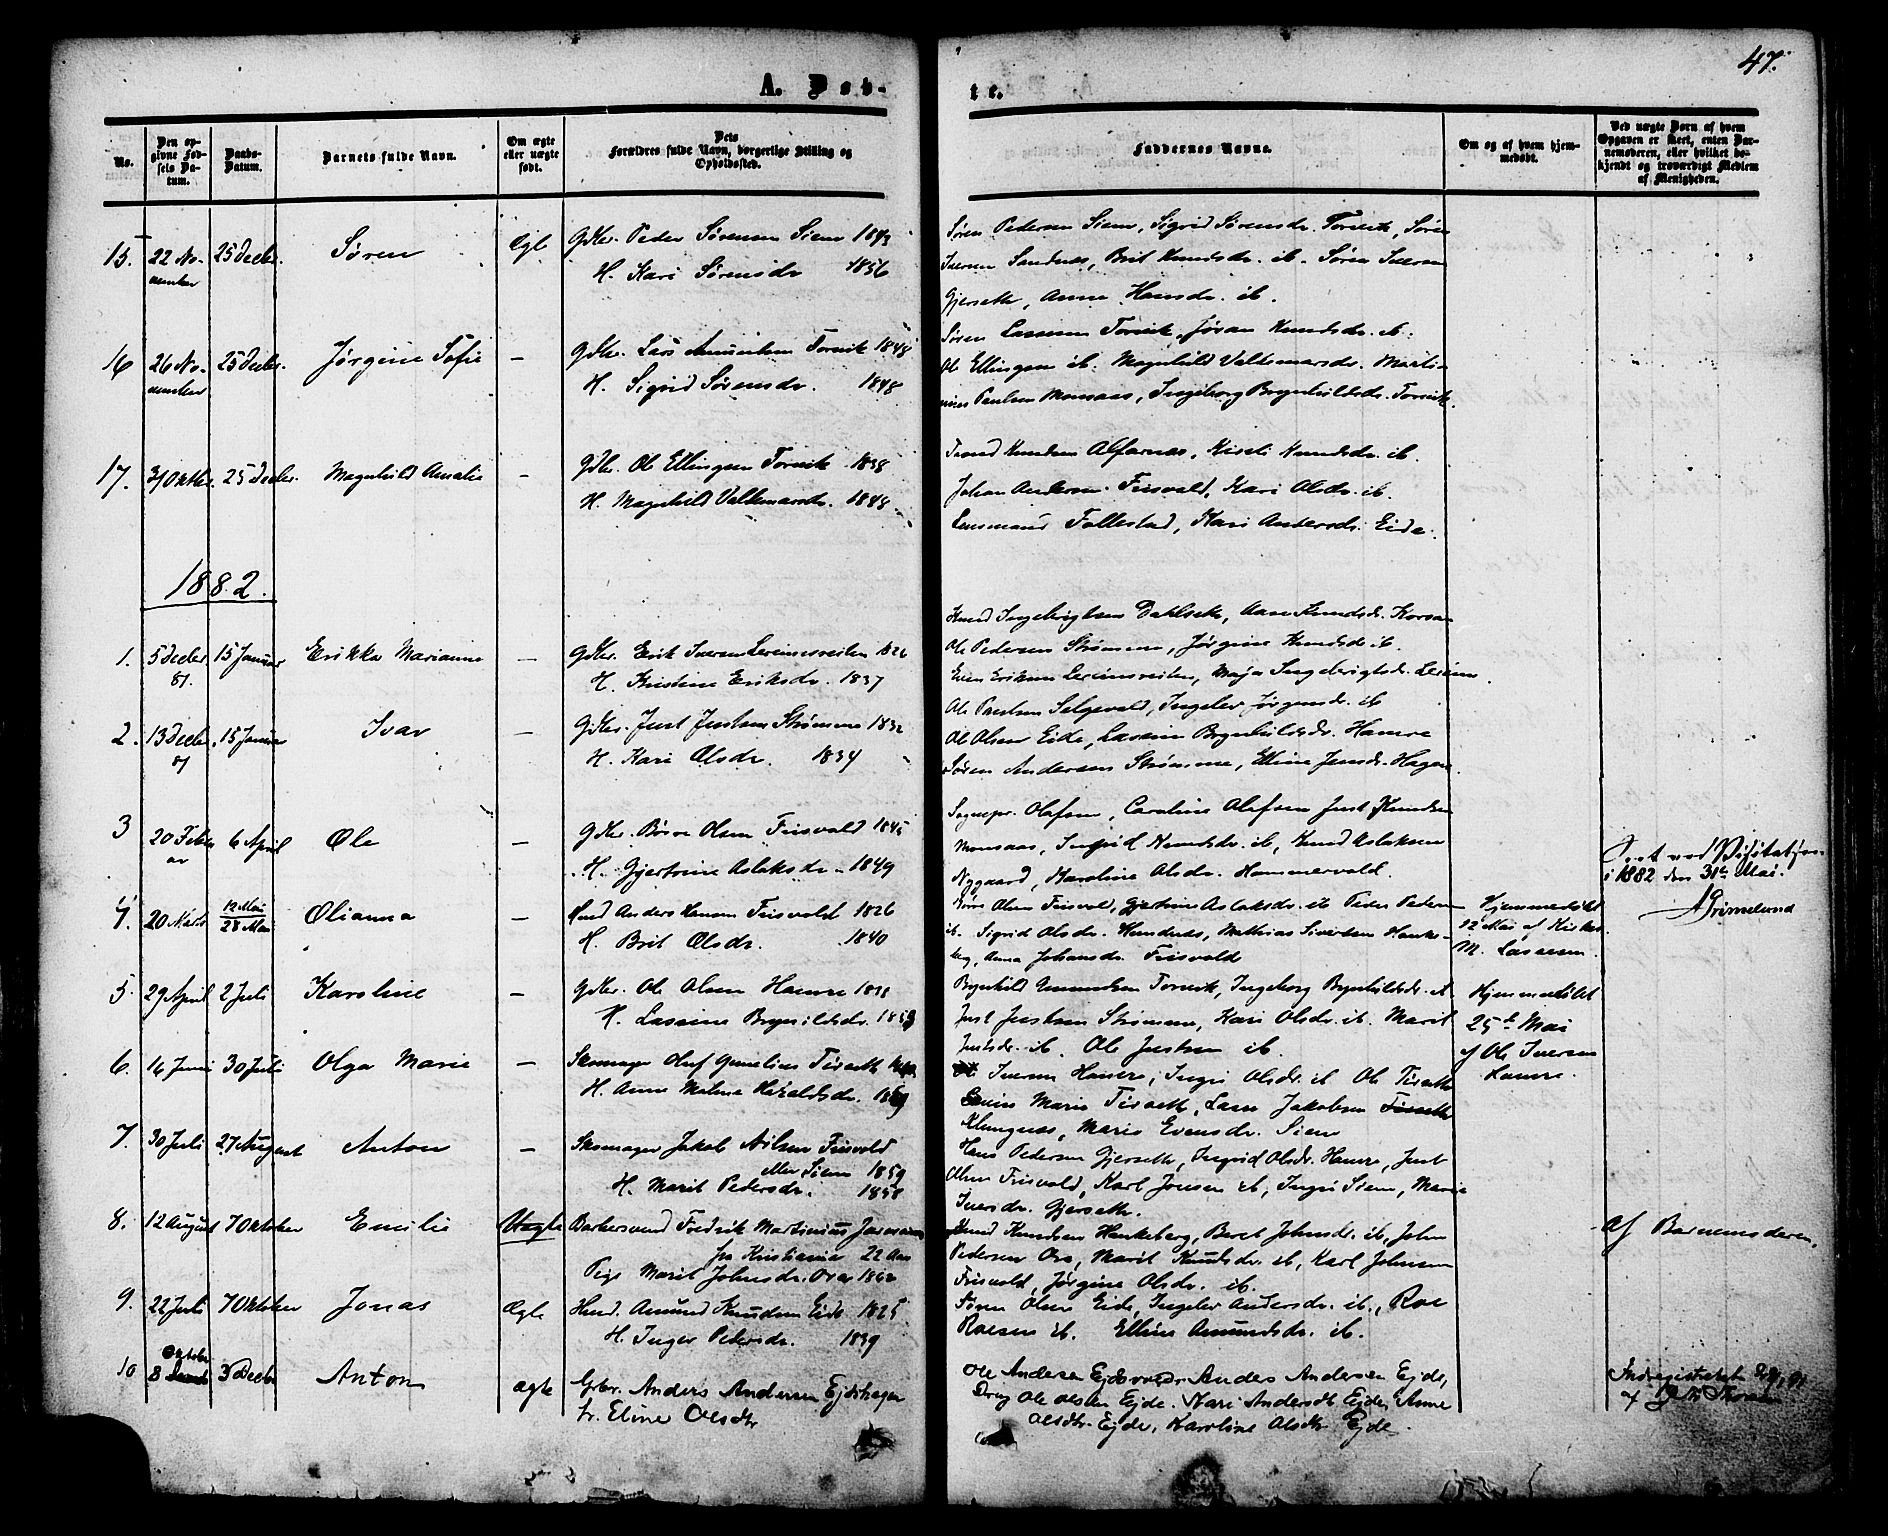 47.
A. Døb-
te.
No.
Den op-
givne Fød-
sels Da-
tum.
Daabs-
Datum.
Barnets fulde Navn.
Om ægte
eller uægte
født.
Dets
Forældres fulde Navn, borgerlige Stilling og
Opholdssted.
Faddernes Navne.
Om og af hvem hjem-
medøbt.
Ved uægte Børn af hvem
Opgaven er skeet, enten Bar-
nemoderen, eller hvilket be-
kjendt og troværdigt Medlem
af Menigheden.
15. 22 No-
vember
25 Decbr. Søren Ægte Gdbr. Peder Sørensen Siem 1843
H. Kari Sørensdr 1856
Søren Pedersen Siem, Sigrid Sørensdr. Torvik, Søren
Iversen Sandnes, Brit Knudsdr. ib. Søren Iversen
Gjerseth, Anne Hansdr. ib.
16 26 No-
vember
25 Decbr. Jørgine Sofie — Gdbr. Lars Amundsen Torvik 1848
H. Sigrid Sørensdr. 1848
Søren Larssen Torvik, Jøran Knudsdr. ib.
Ol Ellingsen ib. Magnhild Valkemarsdr. Marti-
nus Paulsen Monsaas, Ingeborg Brynhildsdr. Torvik.
17. 31 Oktbr. 25 Decbr. Magnhild Amalie — Gdbr. Ole Ellingsen Torvik 1838
H. Magnhild Valkemarsdr. 1848
Trond Knudsen Alfarnæs, Kirsti Knudsdr. ib.
Johan Andersen Frisvold, Kari Olsdr. ib.
Lensmand Follestad, Kari Andersdr. Eide.
1882.
1. 5 Decbr
81.
15 Januar Erikka Marianne — Gdbr. Erik Iversen Lereimsveiten 1826
H. Kristine Eriksdr. 1837
Knud Ingebrigtsen Dahlseth, Aase Knudsdr. Korsan
Ole Pedersen Strømme, Jørgine Knudsdr. ib.
Even Eriksen Lereimsveiten, Maja Ingebrigtsdr. Lereim.
2. 13 Decbr.
81
15 Januar Ivar — Gdbr. Just Justsen Strømme 1832
H. Kari Olsdr. 1834
Ole Paulsen Selgevold, Ingelev Jørgensdr. ib
Ole Olsen Eide, Laseine Brynhildsdr. Hamre
Søren Andersen Strømme, Elline Jensdr. Hagen.
3 20 Febru
ar
6 April Ole — Gdbr. Børre Olsen Frisvold 1845
H. Gjertrine Aslaksdr. 1849
Sognepr. Olafsen, Caroline Olafsen Just Knudsen
Monsaas, Ingrid Knudsdr. ib, Knud Aslaksen
Nygaard, Karoline Olsdr. Hammervold.
Seet ved Visitatsen
i 1882 den 31te Mai.
AGrimelund
4. 20 Marts 12 Mai
28 Mai
Olianna — Hmd Anders Hansen Frisvold 1826
H. Brit Olsdr. 1840
Børre Olsen Frisvold, Gjertrine Aslaksdr. ib Peder Peders
ib. Sigrid Olsdr. Hundnæs, Mathias Sivertsen Hauke-
berg, Anna Johansdr. Frisvold
Hjemmedøbt
12 Mai af Kirkes.
M. Lassesen
5. 29 April 2 Juli Karoline — Gdbr. Ole Olsen Hamre 1838
H. Laseine Brynildsdr. 1853
Brynhild Amundsen Torvik, Ingeborg Brynhildsdr. ib
Just Justsen Strømme, Kari Olsdr. ib. Marit
Justsdr. ib. Ole Justsen ib.
Hjemmedøbt
25de Mai
af Ole Iversen
Hamre.
6. 14 Juni 30 Juli Olga Marie — Skomager Oluf Gunelius Tisseth
H. Anne Malene Haraldsdr. 1859
Iversen Hamre, Ingri Olsdr. ib Ole Tisseth
Marie Tisseth, Lars Jakobsen
Klungnæs, Marie Evensdr. Siem
7. 30 Juli 27 August Anton — Skomager Jakob Nilsen Frisvold
eller Siem 1859
H. Marit Pedersdr. 1858
Hans Pedersen Gjerseth, Ingrid Olsdr. Hamre, Just
Olsen Frisvold, Karl Jonsen ib, Ingri Siem, Marie
Iversdr. Gjerseth.
8. 12 August 7 Oktober Emilie Uægte Barkersvend Fredrik Martinius
fra Kristiania 22 Aar
Pige Marit Johnsdr. Orø 1862
Knud Knudsen Haukeberg, Beret Johnsdr. ib, John
Pedersen Orø, Marit Knudsdr. ib, Karl Johnsen
Frisvold, Jørgine Olsdr. ib.
Af Barnemoderen.
9. 22 Juli 7 Oktober Jonas Ægte Hmd. Amund Knudsen Eide 1825
H. Inger Pedersdr. 1839
Søren Olsen Eide, Ingelev Andersdr. ib., Roe
Roesen ib. Elline Amundsdr. ib.
10 Oktober
8
3 Decbr Anton ægte Gbr. Anders Andersen Ejdshagen
h. Eline Olsdtr
Ole Andersen Anders Andersen Ejde,
Drog Ole Olsen Ejde. Kari Andersdt Ejde, Anne
Olsdtr. Ejde, Karoline Olsdtr Ejde.
Indregistreret
af